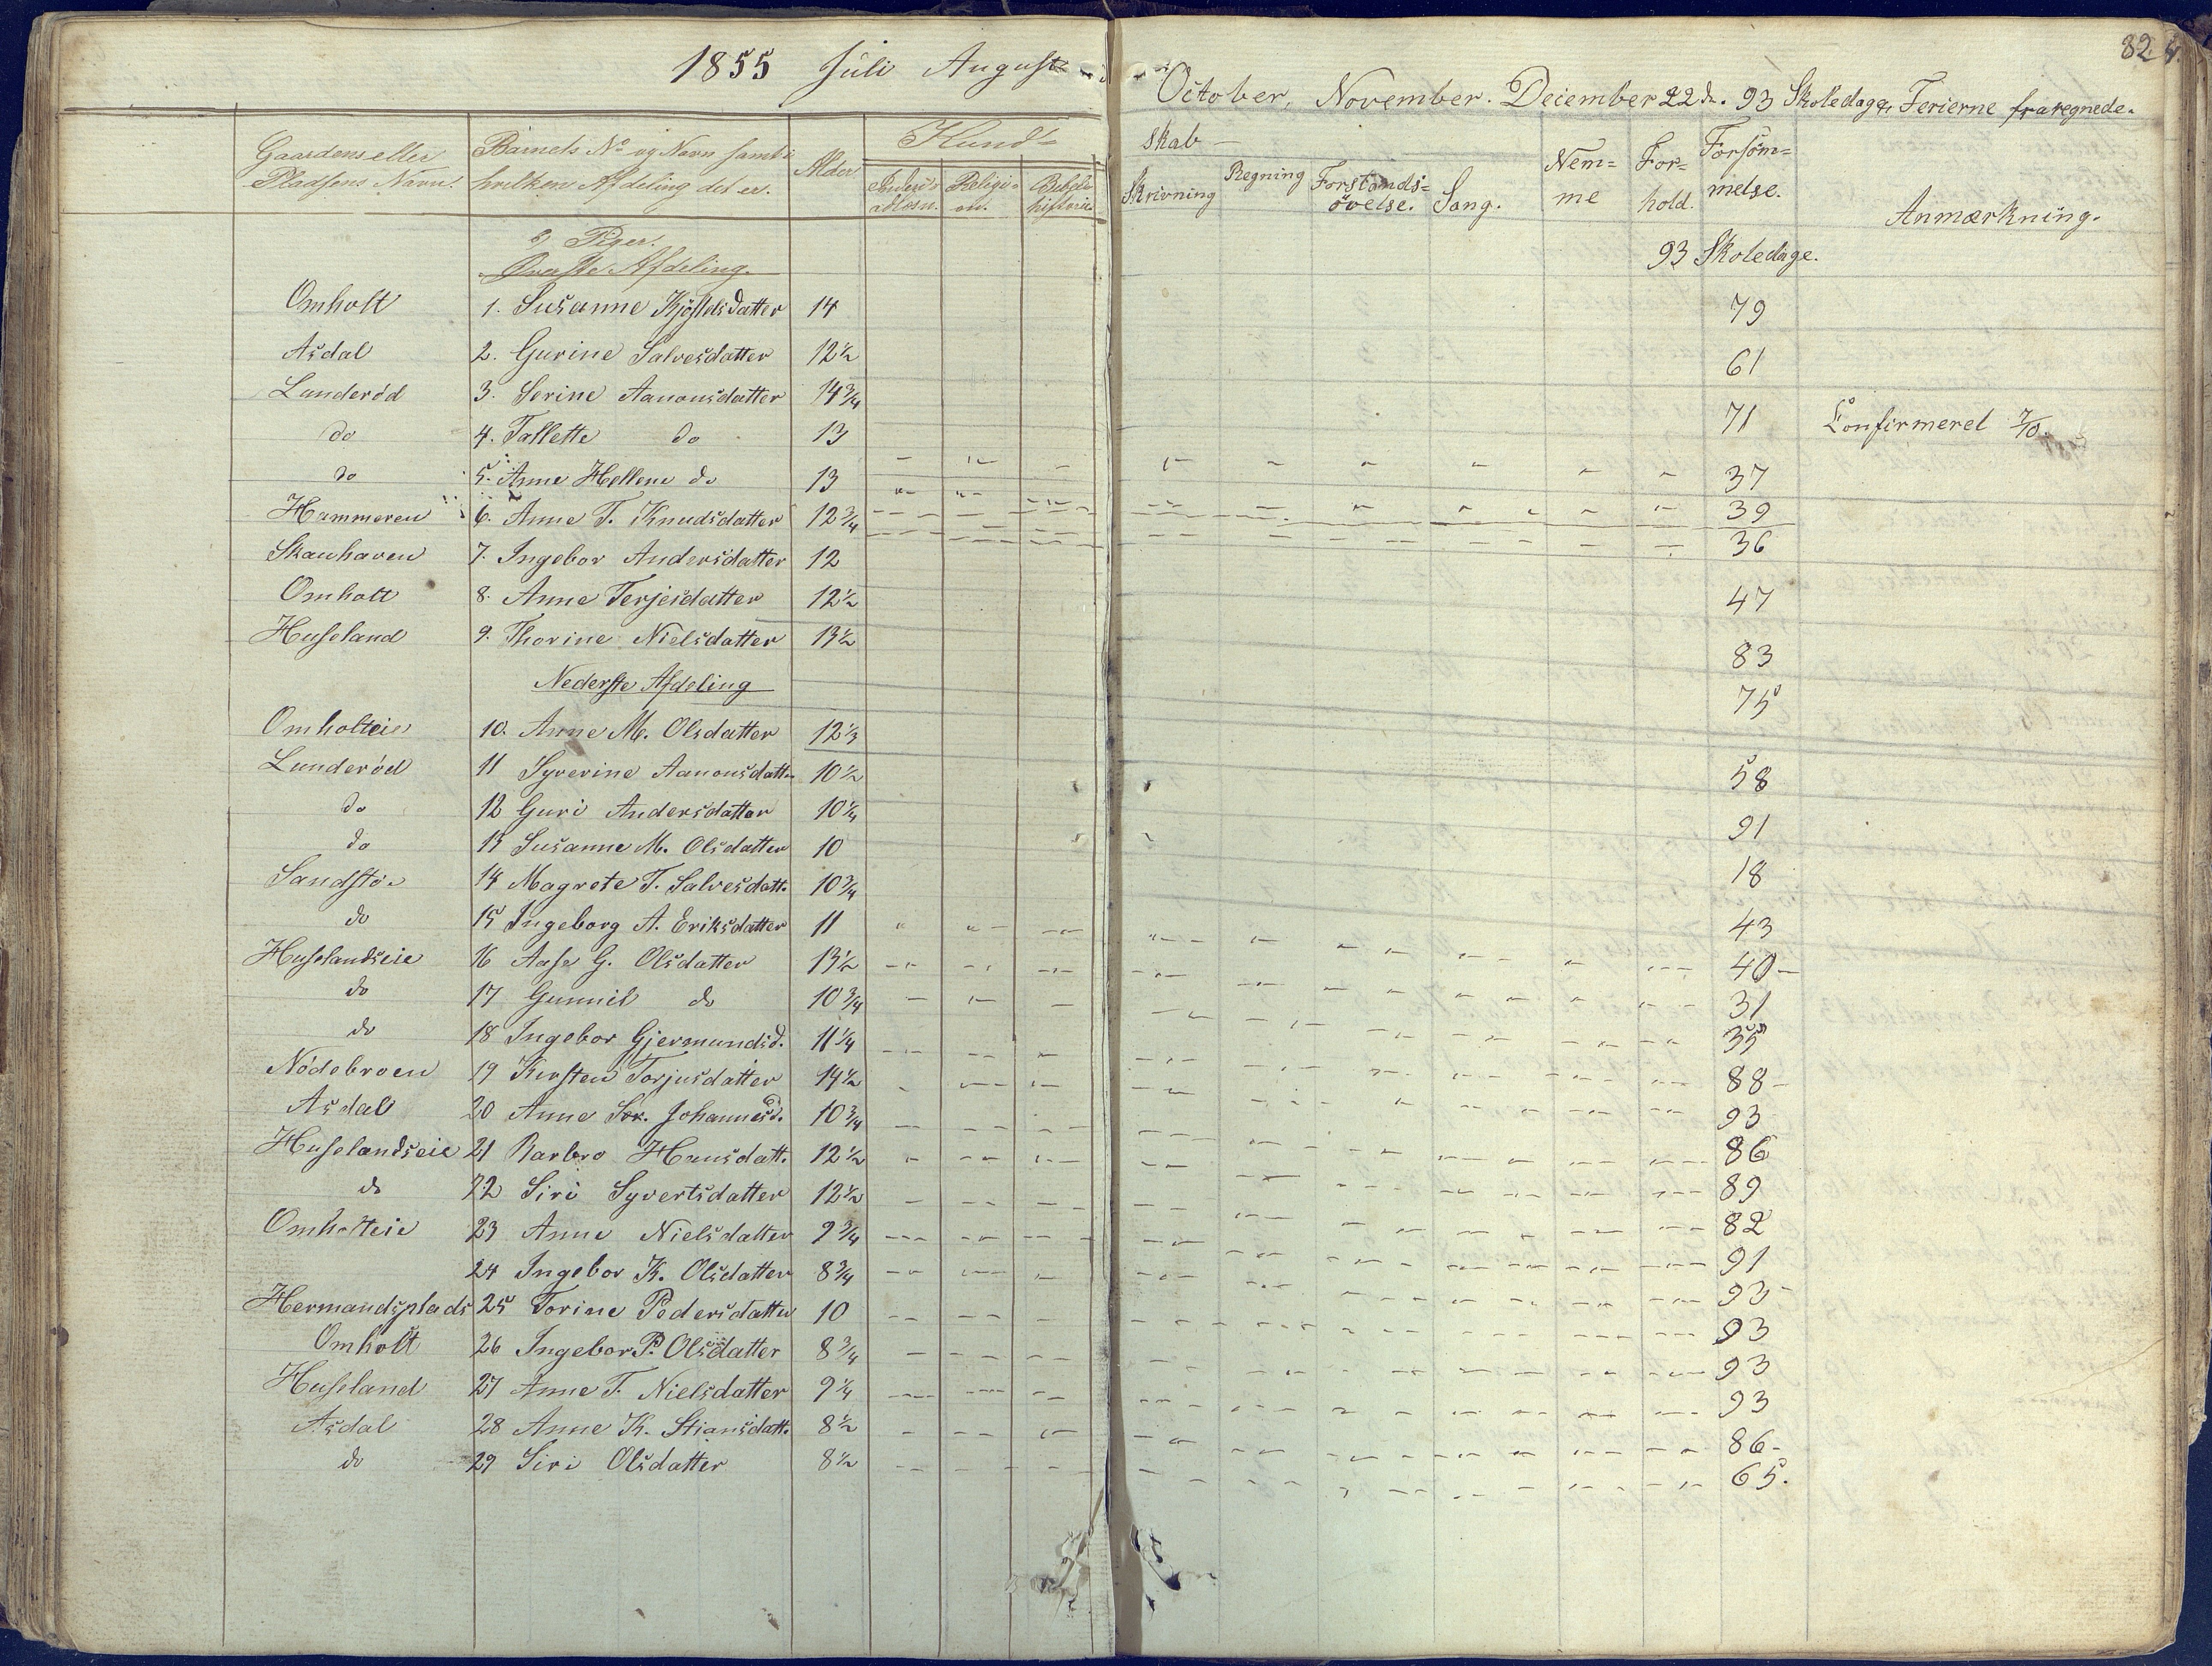 82
1855 Juli August
October, November. December 22de. 93 Skoledage, Ferierne fraregnede.
Gaardens eller Pladsens Navn.
Barnets No og Navn samt i hvilken Afdeling det er.
Alder
Kund-
skab -
Religi-on.
Bibelhistorie.
Skrivning
Regning
Forstands-øvelse.
Sang.
Nem-me
For-hold.
Forsøm-melse.
Anmærkning.
b) Piger.
Øverste Afdeling.
93 Skoledage.
Omholt 1. Susanne Kjøstelsdatter 14 79
Asdal 2. Gurine Salvesdatter 12½ 61
Lunderød 3. Serine Aanonsdatter 14¾ 71 Confirmeret 7/10
do 4. Tallette do 13 37
do 5. Anne Hellene do 13 39
Hammeren 6. Anne T. Knudsdatter 12¾ 36
Skauhaven 7. Ingebor Andersdatter 12 47
Omholt 8. Anne Terjesdatter 12½ 83
Huseland 9. Thorine Nielsdatter 13½ 75
Nederste Afdeling
Omholteie 10. Anne M. Olsdatter 12⅓ 58
Lunderød 11 Syverine Aanonsdatter 10½ 91
do 12 Guri Andersdatter 10¼ 18
do 13 Susanne M. Olsdatter 10 43
Sandstø 14 Magrete T. Salvesdatt. 10¾ 40
do 15 Ingeborg A. Eriksdatter 11 31
Huselandseie 16 Aase G. Olsdatter 13½ 35
do 17 Gunnil do 10¾ 88
do 18 Ingebor Gjermundsd. 11¼ 93
Nødebroen 19 Kirsten Torjusdatter 14½ 86
Asdal 20 Anne Sor. Johannesd. 10¾ 89
Huselandseie 21 Barbro Hansdatt. 12½ 82
do 22 Siri Syvertsdatter 12½ 91
Omholteie 23 Anne Nielsdatter 9¾ 93
24 Ingebor K. Olsdatter 8¾ 93
Hermandsplads 25 Torine Pedersdatter 10 93
Omholt 26 Ingebor P. Olsdatter 8¾ 93
Huseland 27 Anne T. Nielsdatter 9¼ 86
Asdal 28 Anne K. Stiansdatt. 8½ 65.
do 29 Siri Olsdatter 8½